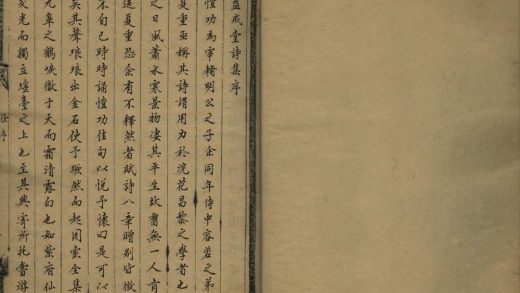 益戒堂詩集序
愷功為宰輔明公之子余同年侍中容若之弟
夏重亟稱其詩謂用力於浣花昌黎之學者也
之日風蕭水寒景物淒其平生故舊無一人肯
送夏重恐余有不釋然者賦詩八章贈別皆徵
不自已時時誦愷功佳句以悅予懷曰是可以
矣其聲琅琅出金石使予蹶然而起因索全集
九皋之鶴唳徹于天而霜清露白也如紫府仙
炙光而獨立瑤臺之上也至其興寄所託嘗游
序